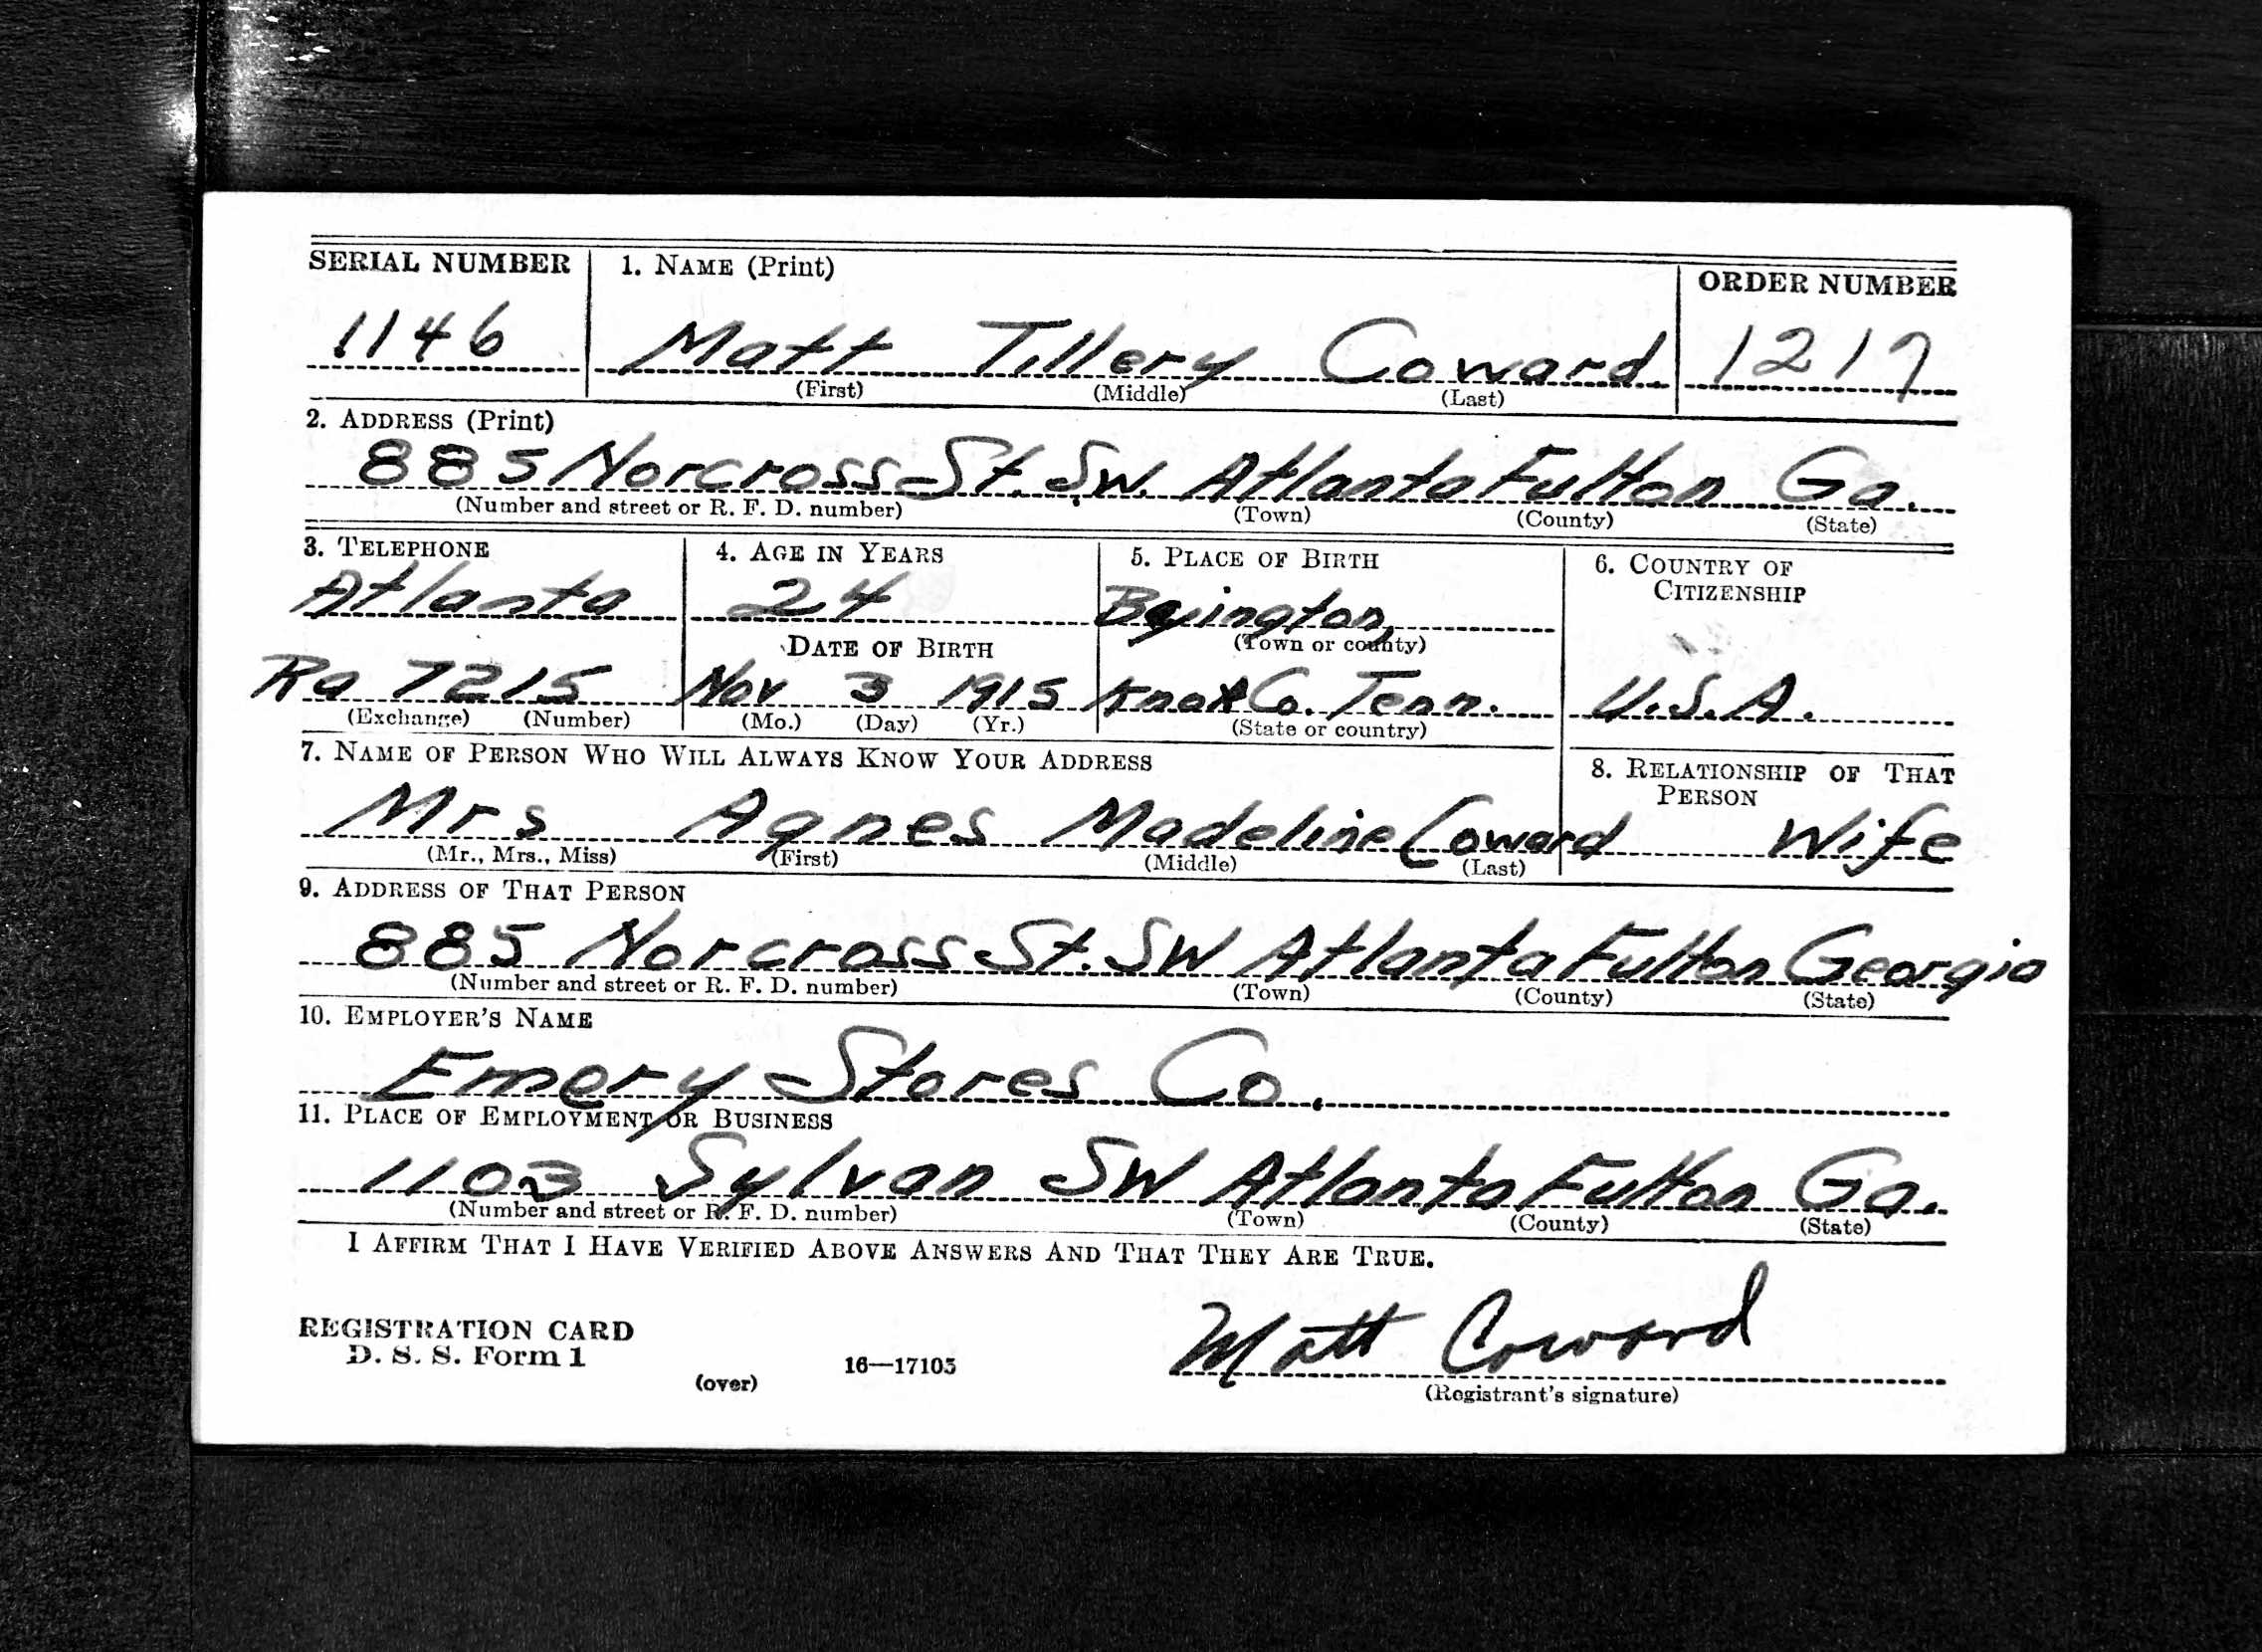 SERIAL NUMBER 1. NAME (Print) ORDER NUMBER
1146 Matt Tillery Coward 1217
(First) (Middle) (Last)
2. ADDRESS (Print)
885 Norcross St. S.W. Atlanta Fulton Ga.
(Number and street or R. F. D. number) (Town) (County) (State)
3. TELEPHONE 4. AGE IN YEARS 5. PLACE OF BIRTH 6. COUNTRY OF CITIZENSHIP
Atlanta 24 Byington,
DATE OF BIRTH (Town or county)
Ra 7215 Nov 3 1915 Knox Co. Tenn. U.S.A.
(Exchange) (Number) (Mo.) (Day) (Yr.) (State or country)
7. NAME OF PERSON WHO WILL ALWAYS KNOW YOUR ADDRESS 8. RELATIONSHIP OF THAT PERSON
Mrs Agnes Madeline Coward Wife
(Mr., Mrs., Miss) (First) (Middle) (Last)
9. ADDRESS OF THAT PERSON
885 Norcross St. SW Atlanta Fulton Georgia
(Number and street or R. F. D. number) (Town) (County) (State)
10. EMPLOYER'S NAME
Emery Stores Co.
11. PLACE OF EMPLOYMENT OR BUSINESS
1103 Sylvan SW Atlanta Fulton Ga.
(Number and street or R. F. D. number) (Town) (County) (State)
I AFFIRM THAT I HAVE VERIFIED ABOVE ANSWERS AND THAT THEY ARE TRUE.
Matt Coward
REGISTRATION CARD
D. S. S. Form 1
(over) 16—17105 (Registrant's signature)